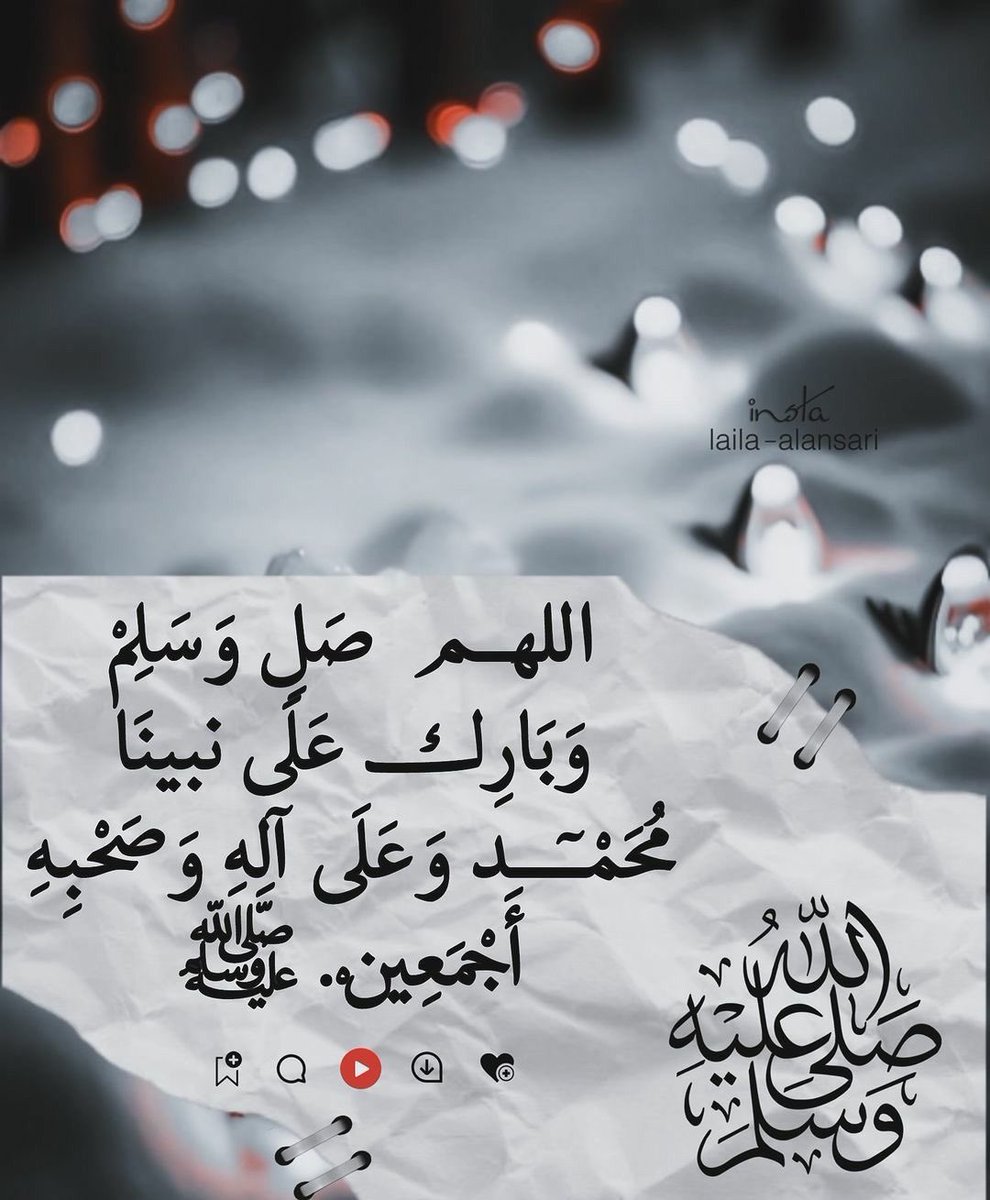 insta
laila-alansari
اللهم صَلِ وَسَلِمْ
وَبَارِك عَلَى نبينَا
مُحَمْـَـد وَعَلَى آلهِ وَصَحْبِهِ
أَجْمَعِين. ﷺ
صَلى اللّٰهُ عليْهِ وَسَلمَ